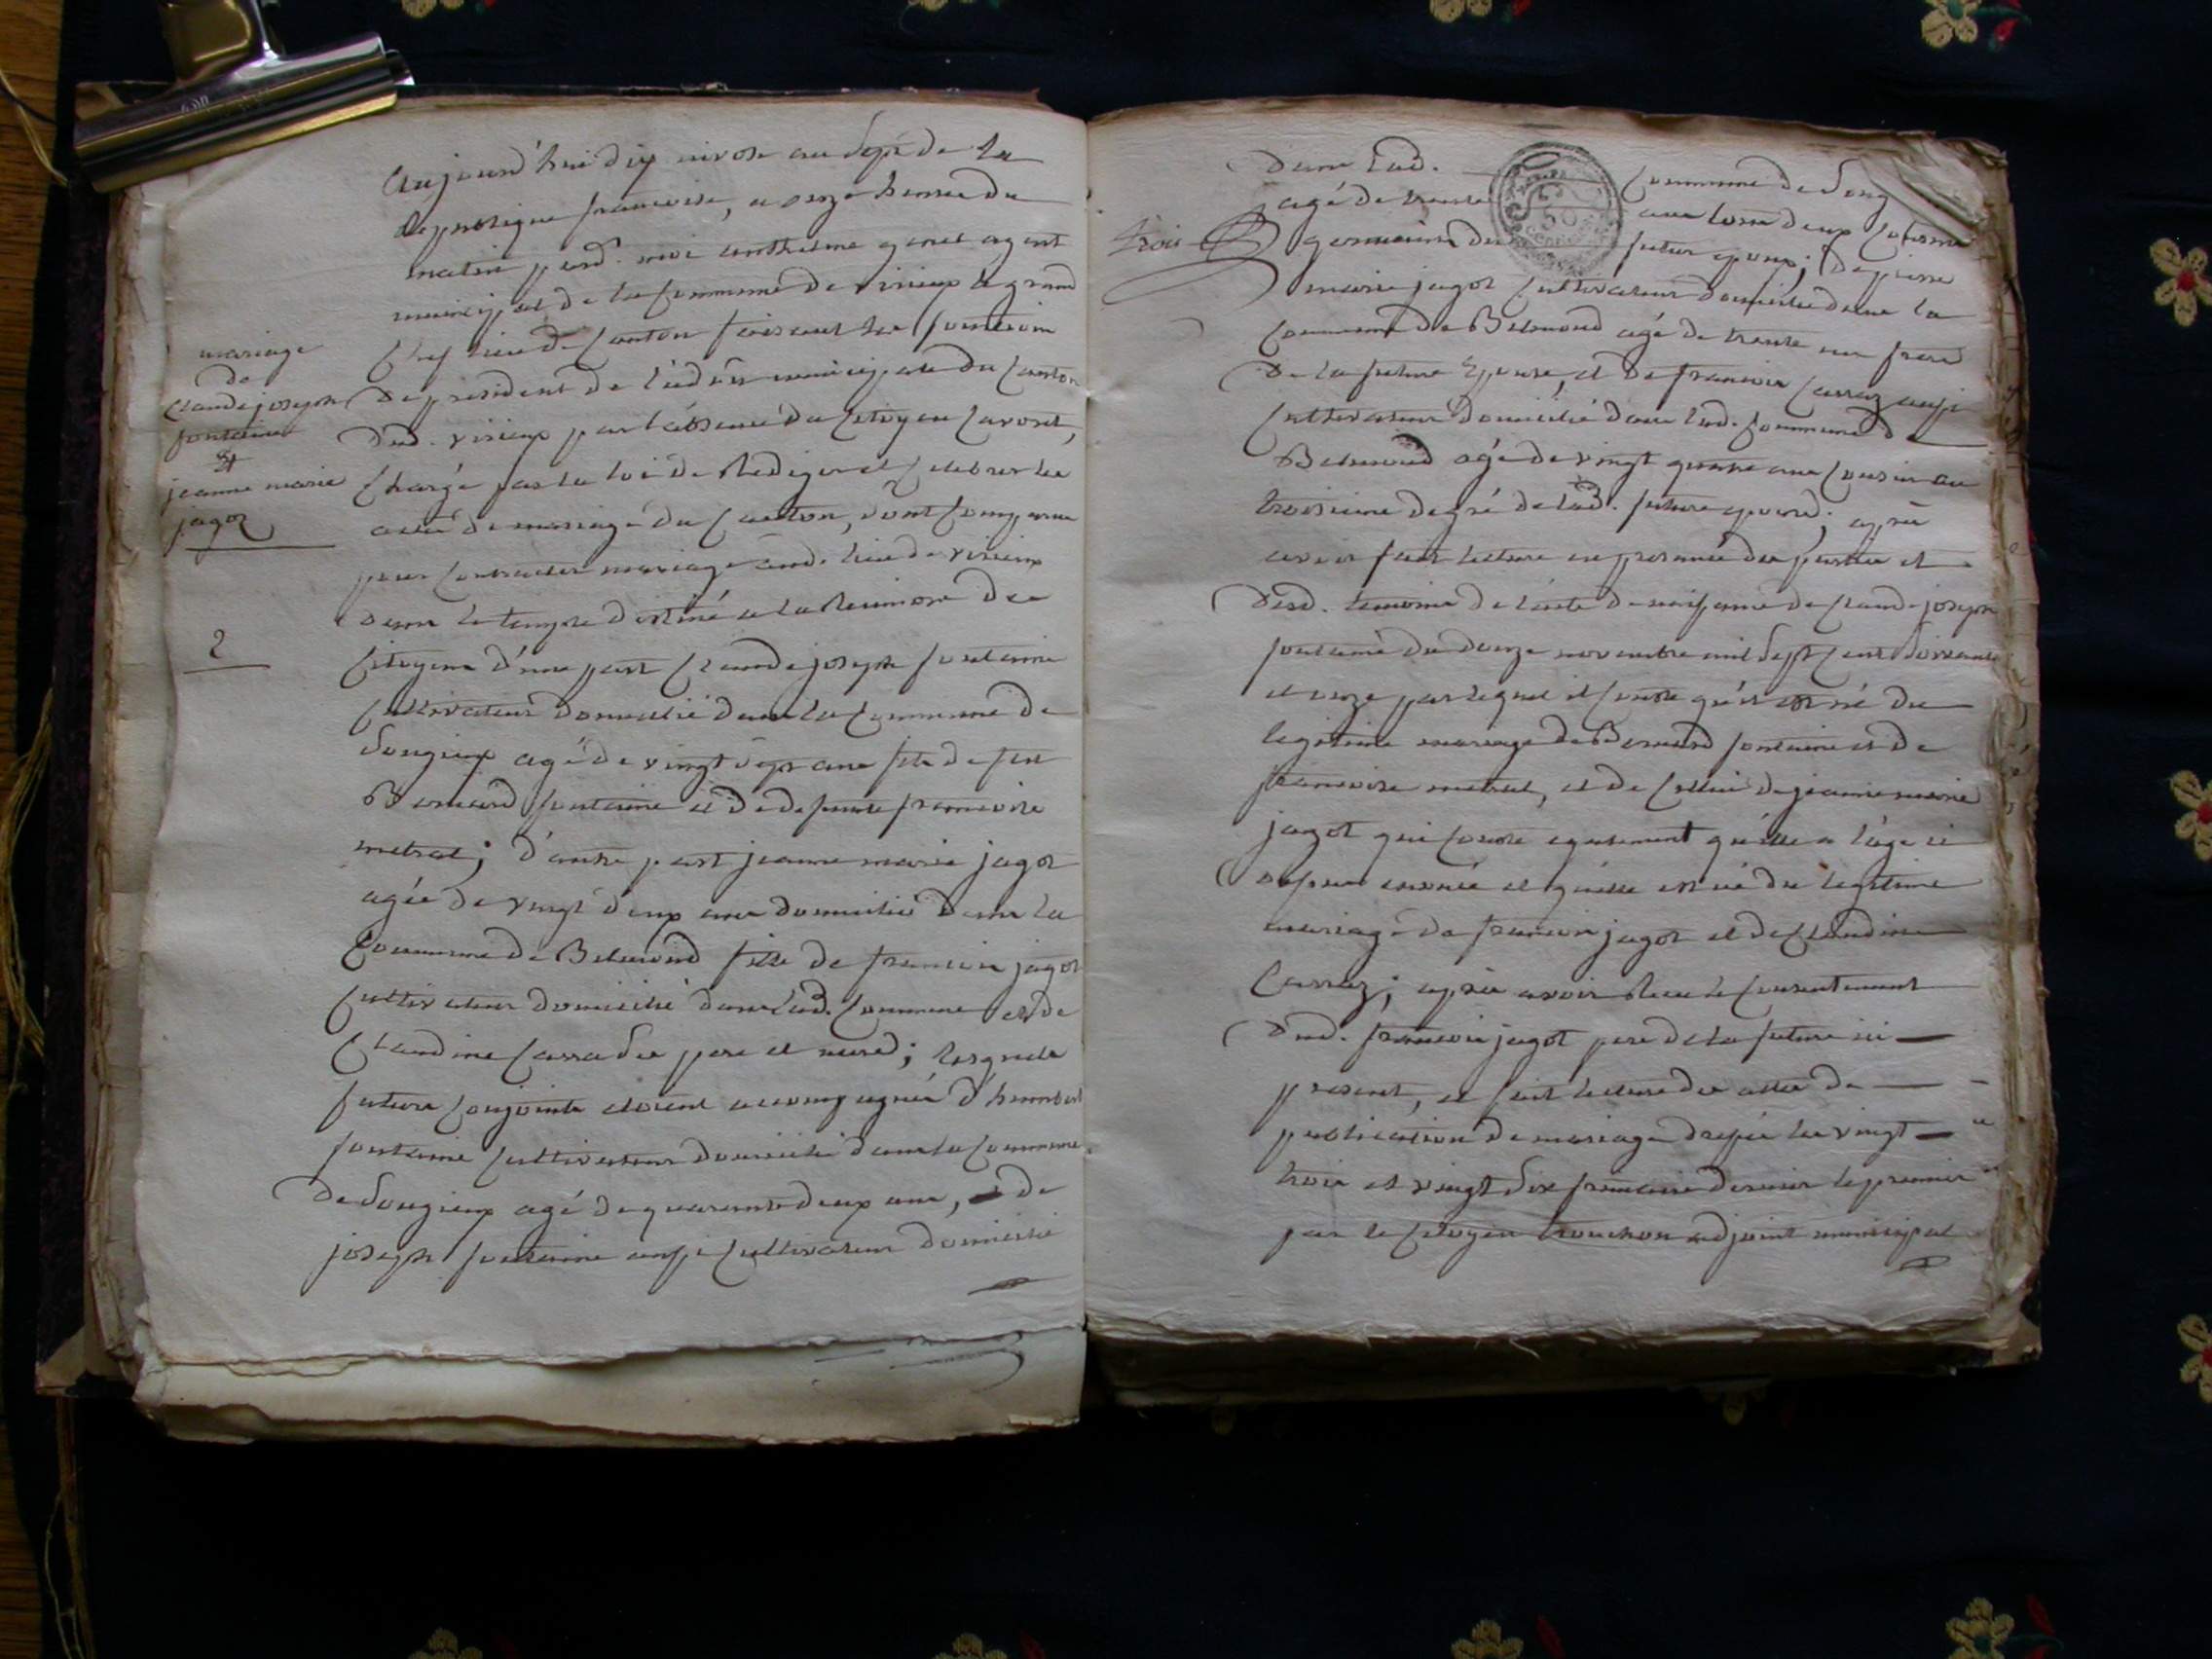 Aujourd'hui dix nivose an sept de la
Republique francoise, a onze heures du
matin pard. moi anthelme genet agent
municipal de la Commune de virieux le grand
Chef lieu de Canton faisant les fonctions
De president de l'ad municipale du Canton
Dud. virieux par l'absence du Citoyen Cavoret,
Chargé par la loi de Rediger et Celebrer les
actes de mariage du Canton, dont
pour Contracter mariage aud. lieu de virieux
Dans le temple destiné a la Reunion des
Citoyens d'une part Claude joseph fontaine
Cultivateur domicilié dans la Commune de
Songieux agé de vingt sept ans fils de feu
Bernard fontaine et de defunte francoise
metral; d'autre part jeanne marie jagot
agée de vingt deux ans domiciliée dans la
Commune de Belmond fille de francois jagot
Cultivateur domicilié dans lad. Commune et de
Claudine Carra ses pere et mere; lesquels
futurs Conjoints etoient accompagnés d'humbert
fontaine Cultivateur domicilié dans la Commune
De Songieux agé de quarante deux ans, de
joseph fontaine aussi Cultivateur domicilié
mariage
de
Claude joseph
fontaine
et
jeanne marie
jagot
2
Dans lad. Commune de Song
agé de trente ans tous deux Cousins
germains du futur epoux; De pierre
trois
marie jagot Cultivateur domicilié dans la
Commune de Belmond agé de trente un frere
De la future Epouse, et De francois Carraz aussi
Cultivateur domicilié dans lad. Commune de
Belmond agé de vingt quatre ans Cousin au
troisieme degré de lad. future epouse; après
avoir fait lecture en presence des parties et
Desd. temoins de l'acte de naissance de Claude joseph
fontaine du douze novembre mil sept Cent soixante
et onze par lequel il Conste qu'il est né du
legitime mariage de Bernard fontaine et de
francoise metral, et de Celui de jeanne marie
jagot qui Conste egalement qu'elle a l'age ci
Dessus enoncé et qu'elle est née du legitime
mariage de francois jagot et de Claudine
Carraz; après avoir Recu le Consentement
Dud. francois jagot pere de la future ici
present, et fait lecture des actes de
publication de mariage dressés les vingt
trois et vingt six frimaire dernier le premier
par le Citoyen trouchon adjoint municipal